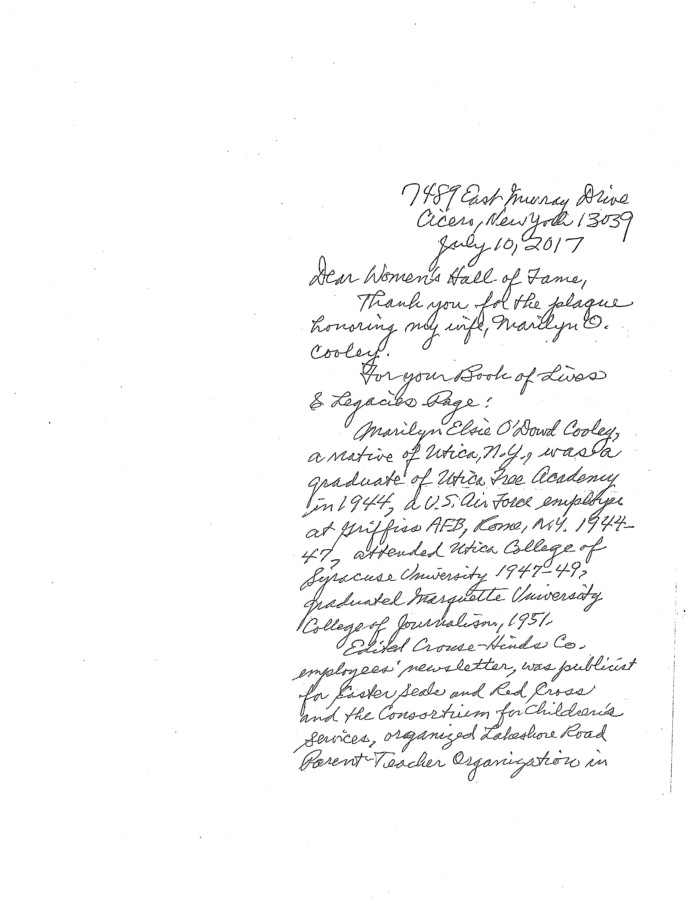 7489 East Murray Drive
Cicero, New York 13039
July 10, 2017
Dear Women's Hall of Fame,
Thank you for the plaque
honoring my wife, Marilyn O.
Cooley.
For your Book of Lives
& Legacies Page:
Marilyn Elsie O'Dowd Cooley,
a native of Utica, N.Y., was a
graduate of Utica Free Academy
in 1944, a U.S. Air Force employee
at Griffiss AFB, Rome, N.Y. 1944-
47, attended Utica College of
Syracuse University 1947-49,
graduated Marquette University
College of Journalism, 1951.
Edited Crouse-Hinds Co.
employees' newsletter, was publicist
for Easter Seals and Red Cross
and the Consortium for Children's
Services, organized Lakeshore Road
Parent-Teacher Organization in